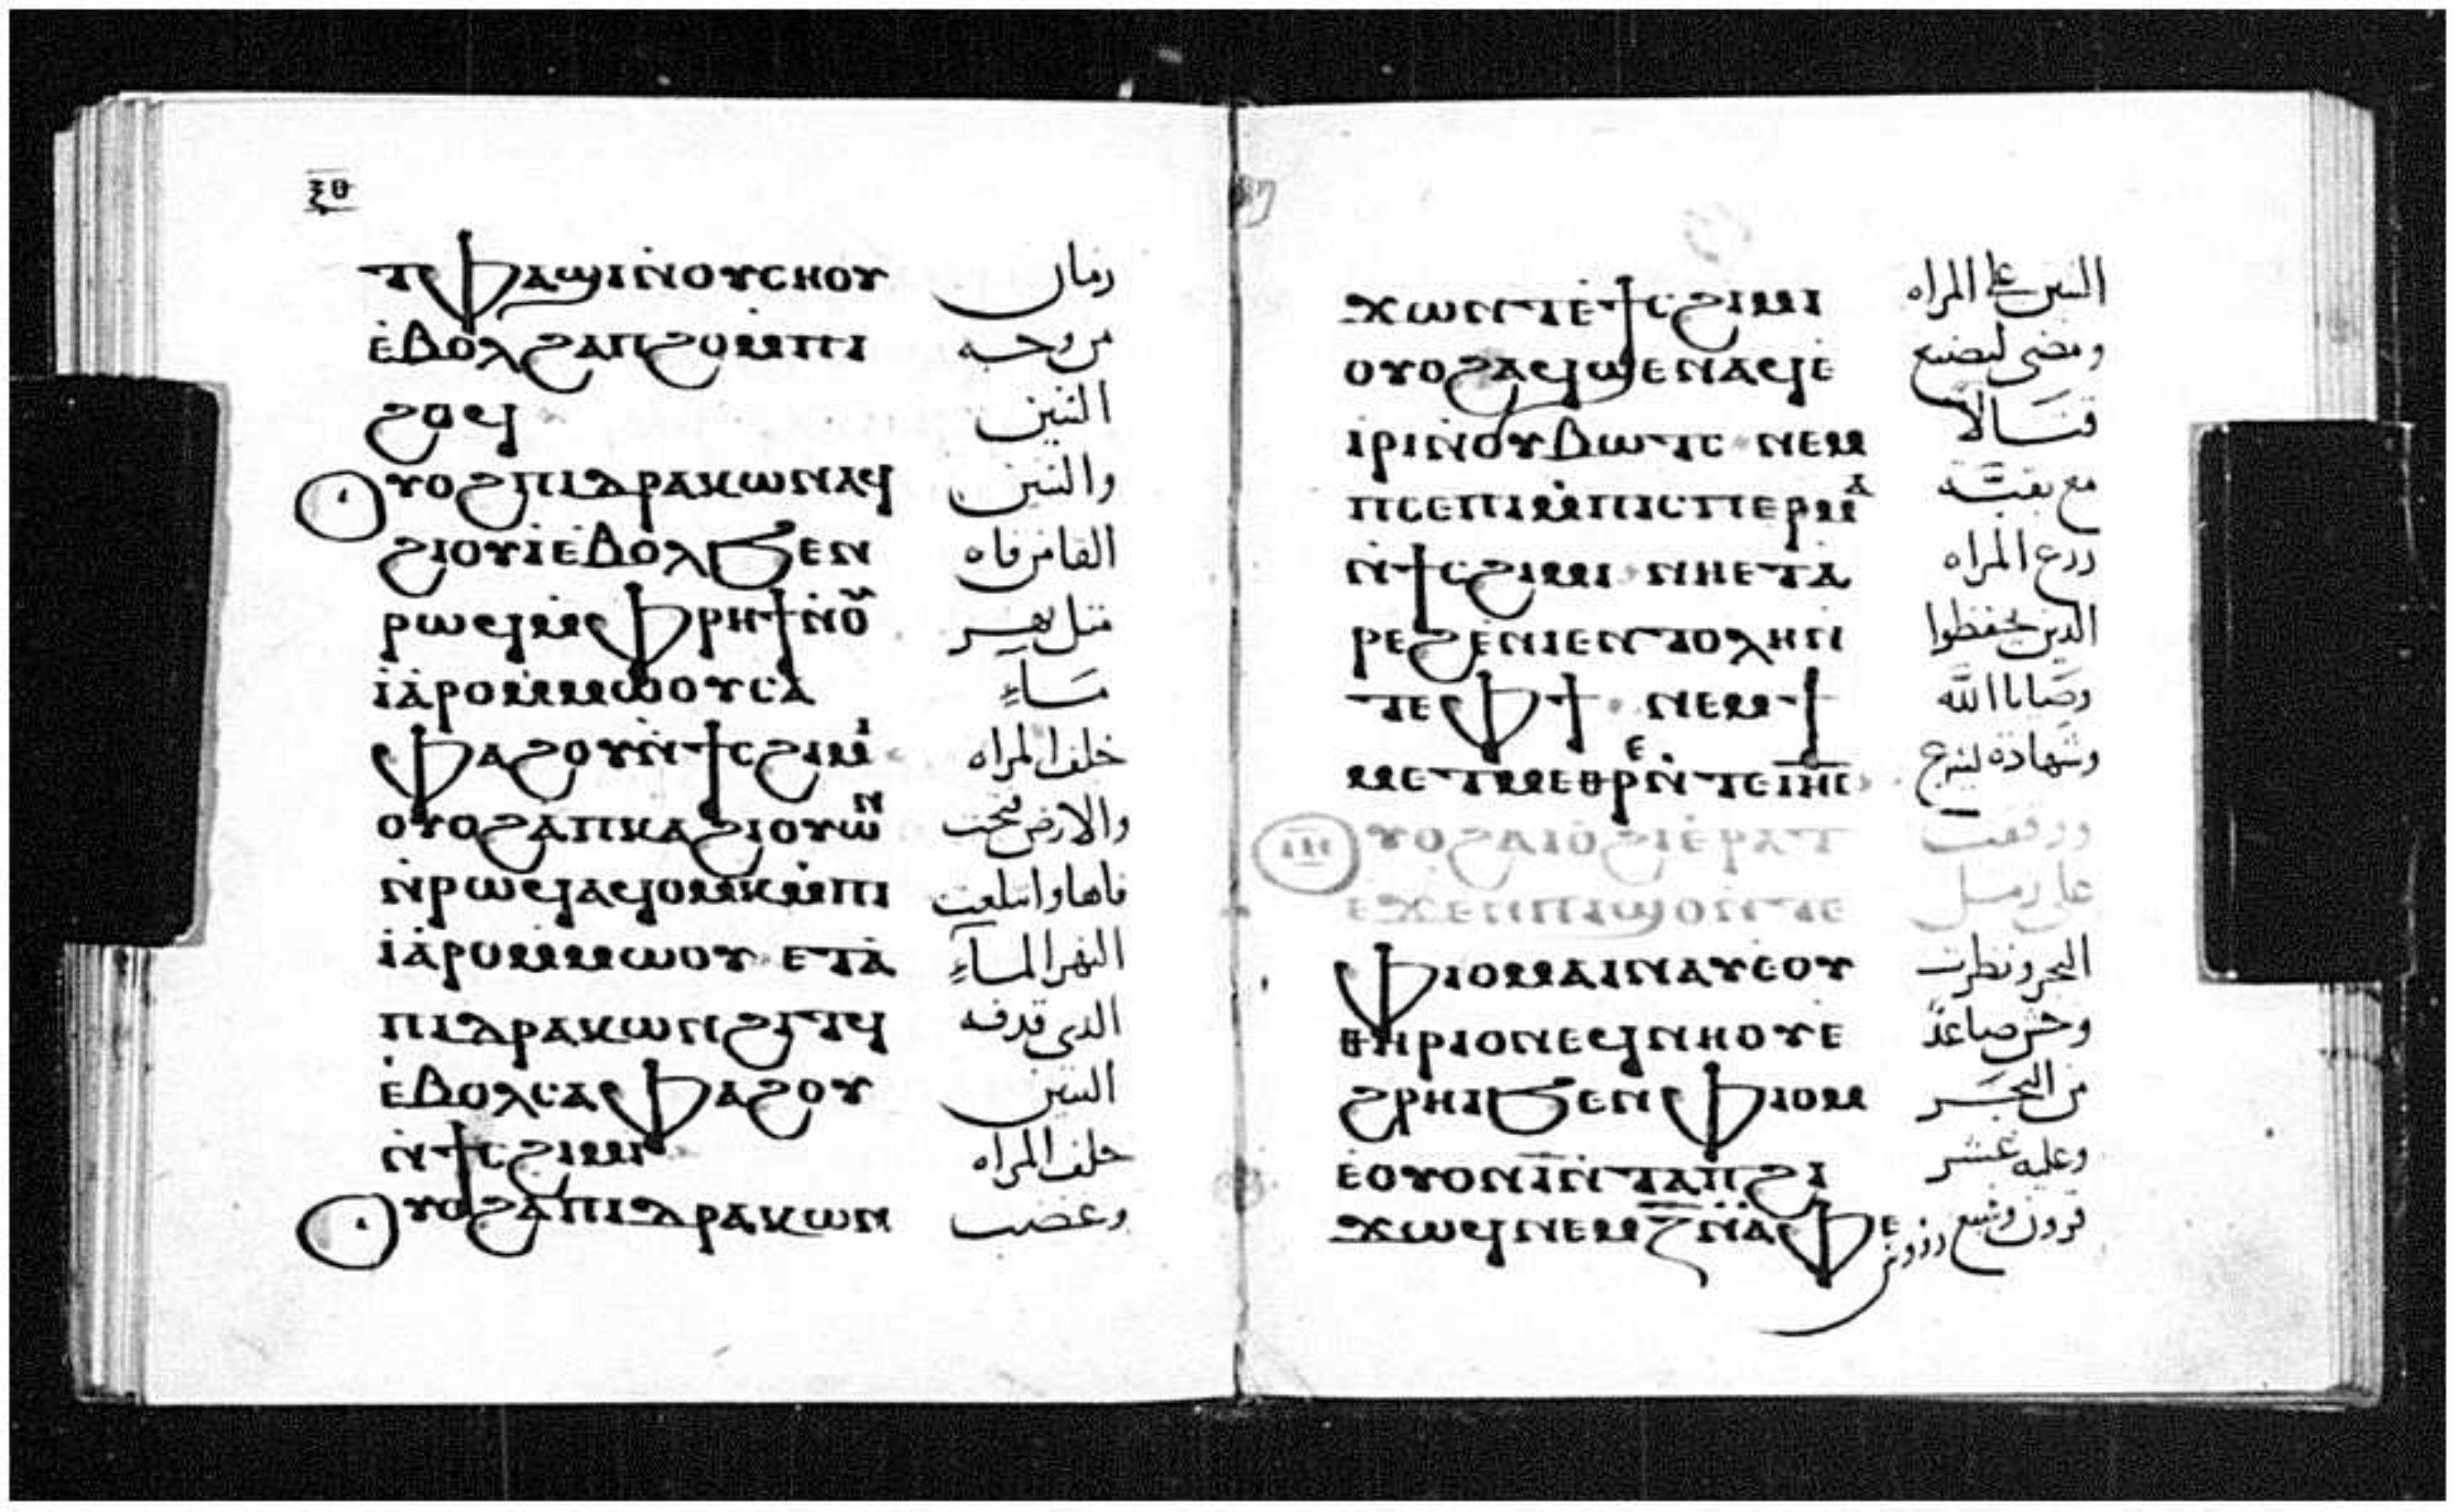 ⲝⲑ
ⲧⲫⲁϣⲓⲛ̇ⲟⲩⲥⲏⲟⲩ زمان
ⲉ̇ⲃⲟⲗϩⲁⲡϩⲟⲙ̇ⲡⲓ من وجه
ϩⲟϥ التنين
ⲟⲩⲟϩⲡⲓⲇⲣⲁⲕⲱⲛⲁϥ والتنين
ϩⲓⲟⲩⲓ̇ⲉ̇ⲃⲟⲗϧⲉⲛ القا من فاه
ⲣⲱϥⲙ̇ⲫⲣⲏϯⲛ̇ⲟ︤ⲩ︥ مثل نهر
ⲓ̇ⲁ̇ⲣⲟⲙ̇ⲙⲱⲟⲩⲥⲁ مَاءٍ
ⲫⲁϩⲟⲩⲛ̇ϯⲥϩⲓⲙⲓ خلف المراه
ⲟⲩⲟϩⲁ̇ⲡⲕⲁϩⲓⲟⲩⲱⲛ والارض فتحت
ⲛ̇ⲣⲱϥⲁϥⲟⲙⲕⲙ̇ⲡⲓ فاها وابتلعت
ⲓ̇ⲁ̇ⲣⲟⲙ̇ⲙⲱⲟⲩ ⲉⲧⲁ̇ النهر الماءِ
ⲡⲓⲇⲣⲁⲕⲱⲛϩⲓⲧϥ الدى قدفه
ⲉ̇ⲃⲟⲗⲥⲁⲫⲁϩⲟⲩ التنين
ⲛ̇ϯⲥϩⲓⲙⲓ خلف المراه
ⲟⲩⲟϩⲁ̇ⲡⲓⲇⲣⲁⲕⲱⲛ وغضب
ϫⲱⲛⲧⲉ̇ϯⲥϩⲓⲙⲓ التنين على المراه
ⲟⲩⲟϩⲁϥϣⲉⲛⲁϥⲉ̇ ومضى ليصنع
ⲓⲣⲓⲛ̇ⲟⲩⲃⲱⲧⲥ ⲛⲉⲙ قتالاً
ⲡⲥⲉⲡⲓⲙ̇ⲡⲓⲥⲡⲉⲣⲙⲁ مع بقيَّة
ⲛ̇ϯⲥϩⲓⲙⲓ ⲛⲏⲉⲧⲁ̇ زرع المراه
ⲣⲉϩⲉ̇ⲛⲓⲉⲛⲧⲟⲗⲏⲛ الدين يحفظوا
ⲧⲉⲫϯ ⲛⲉⲙϯ وصَايا الله
ⲙⲉⲧⲙⲉⲑⲣⲉⲛ̇ⲧⲉⲓⲏⲥ وشهادة
ⲟⲩⲟϩⲁⲓⲟ̇ϩⲓⲉ̇ⲣⲁⲧ ووقفت
ⲉϫⲉⲛⲡⲓϣⲟⲛⲧⲉ على رمل
ⲫⲓⲟⲙⲁⲓⲛⲁⲩⲉⲟⲩ البحر ونظرت
ⲑⲏⲣⲓⲟⲛⲉϥⲛⲏⲟⲩⲉ وحش صاعدً
ϩⲣⲏⲓϧⲉⲛⲫⲓⲟⲙ من البحَر
ⲉ̇ⲟⲩⲟⲛⲓ̅ⲛ̇ⲧⲁⲡϩⲓ وعليه عشر
ϫⲱϥⲛⲉⲙⲍ̅ⲛ̇ⲁ̇ⲫⲉ قرون وسبع